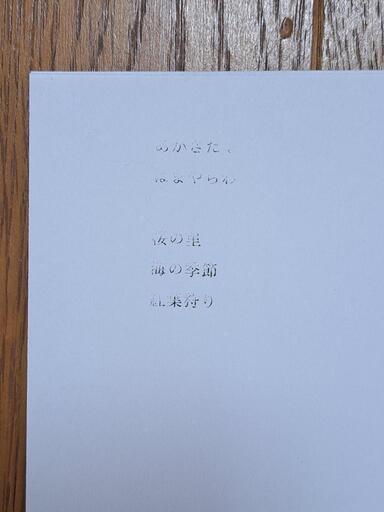 あかさたな
はまやらわ
桜の里
海の季節
紅葉狩り